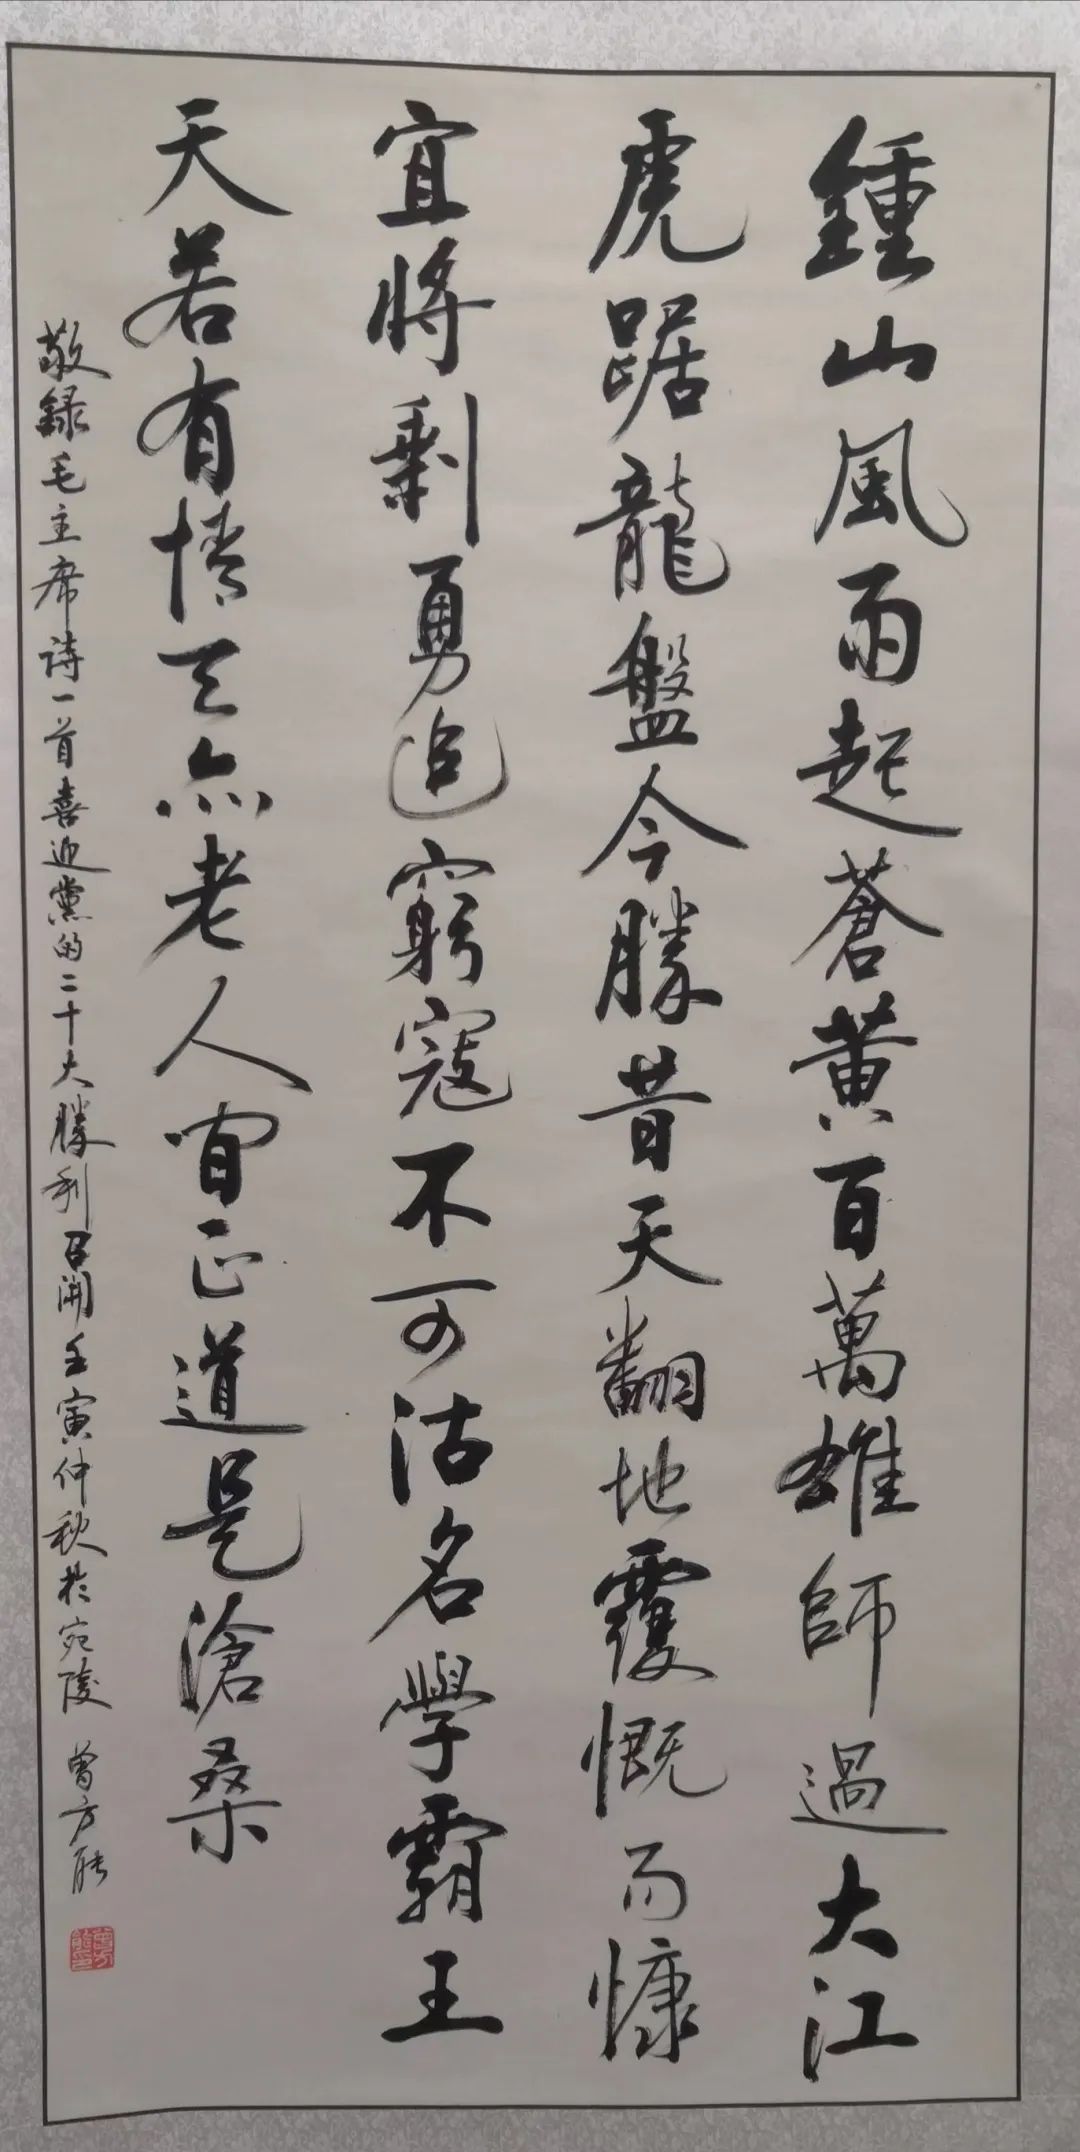 鍾山風雨起蒼黃百萬雄師過大江
虎踞龍盤今勝昔天翻地覆慨而慷
宜將剩勇追窮寇不可沽名學霸王
天若有情天亦老人間正道是滄桑
敬録毛主席詩一首喜迎黨的二十大勝利召開壬寅仲秋於宛陵 曾方能
曾方能印